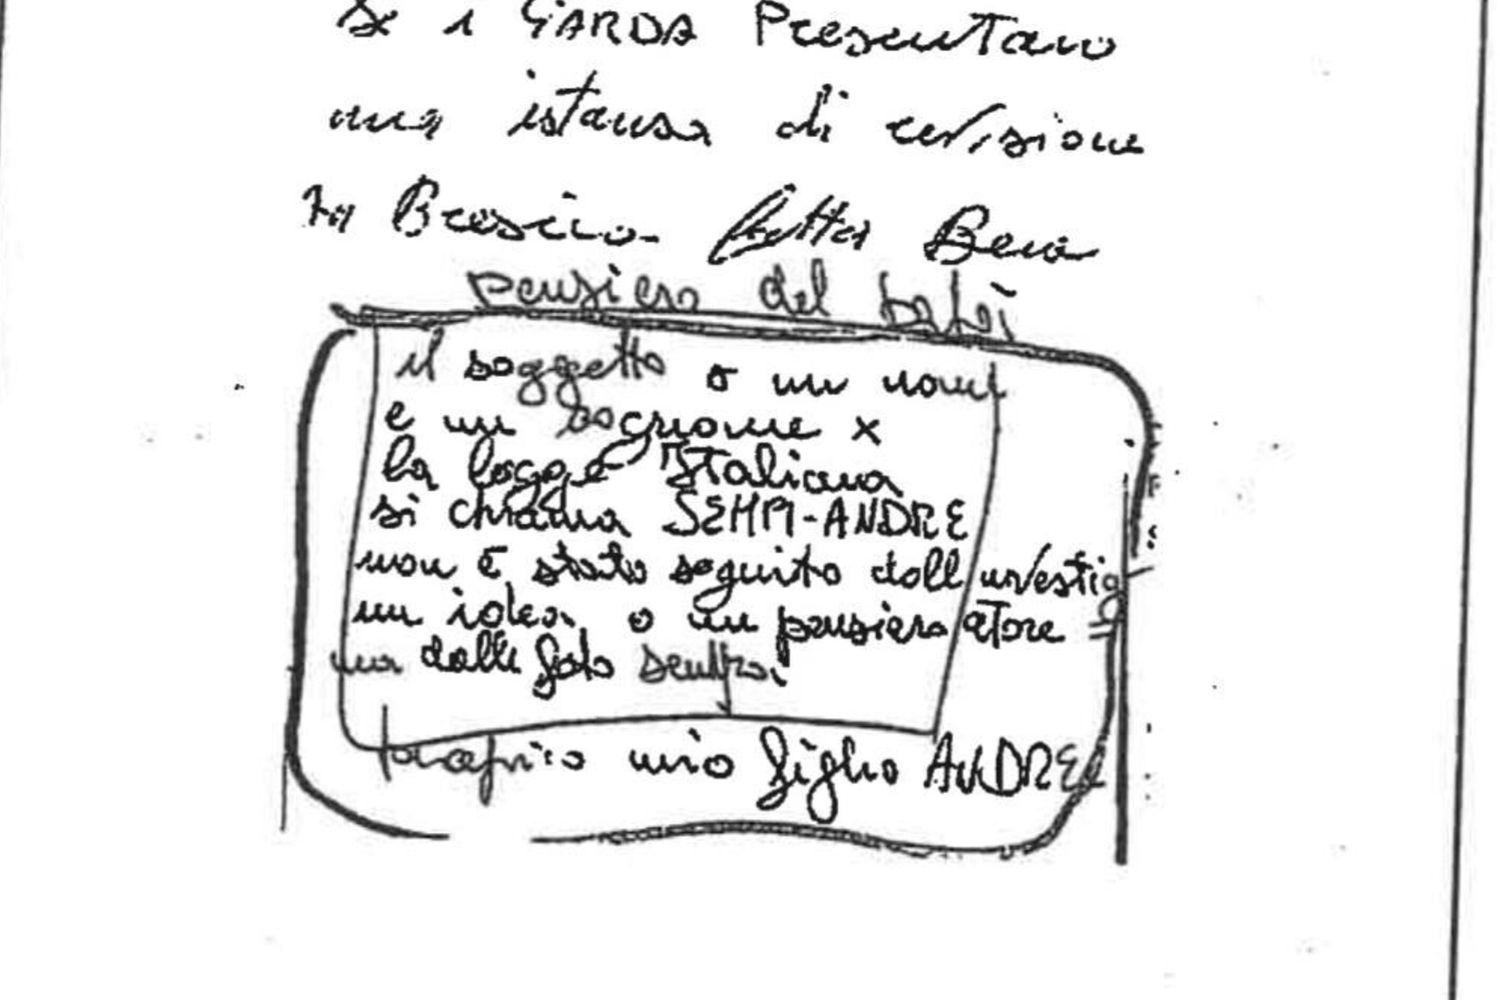 Se i GARDA Presentano
una istanza di revisione
ta Brescia fatta Bene
pensiero del
il soggetto o un nome
e un cognome x
la legge Italiana
si chiama SEMPI-ANDRE
non è stato seguito dall investig
un idea o un pensiero atore
ma dalle foto sembra
mio figlio ANDRE